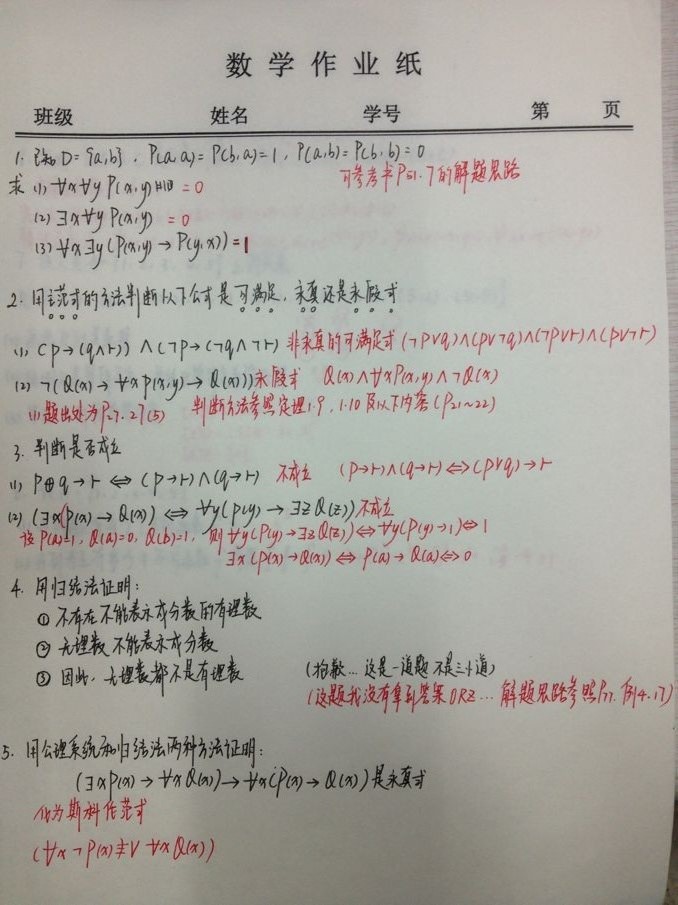 数学作业纸
班级 姓名 学号 第 页
1. 已知 D={a,b}, P(a,a)=P(b,a)=1, P(a,b)=P(b,b)=0
可参考书P51.7的解题思路
求 (1) ∀x∀y P(x,y) =0
(2) ∃x∀y P(x,y) =0
(3) ∀x∃y(P(x,y)→P(y,x)) =1
2. 用主范式的方法判断以下公式是可满足,永真还是永假式
(1) (P→(q∧r)) ∧(¬P→(¬q∧¬r) 非永真的可满足式 (¬P∨q)∧(P∨¬q)∧(¬P∨r)∧(P∨¬r)
(2) ¬(Q(x)→∀xP(x,y)→Q(x))) 永假式 Q(x)∧∀xP(x,y)∧¬Q(x)
(1)题出处为P27.27(5) 判断方法参照定理1.9,1.10及以下内容(P21~22)
3. 判断是否成立
(1) P⊕q→r ⇔ (P→r)∧(q→r) 不成立 (P→r)∧(q→r)⇔(P∨q)→r
(2) (∃x(P(x)→Q(x)) ⇔ ∀y(P(y)→∃zQ(z)) 不成立
设P(a)=1, Q(a)=0, Q(b)=1, 则∀y(P(y)→∃zQ(z))⇔∀y(P(y)→1)⇔1
∃x(P(x)→Q(x))⇔P(a)→Q(a)⇔0
4. 用归结法证明:
① 不存在不能表示成分数的有理数
② 无理数不能表示成分数
③ 因此,无理数都不是有理数 (抱歉...这是一道题不是三小道)
(这题我没有拿到答案ORZ... 解题思路参照P77.例4.17)
5. 用公理系统和归结法两种方法证明:
(∃xP(x)→∀xQ(x))→∀x(P(x)→Q(x))是永真式
化为斯科伦范式
(∀x¬P(x)∨∀xQ(x))